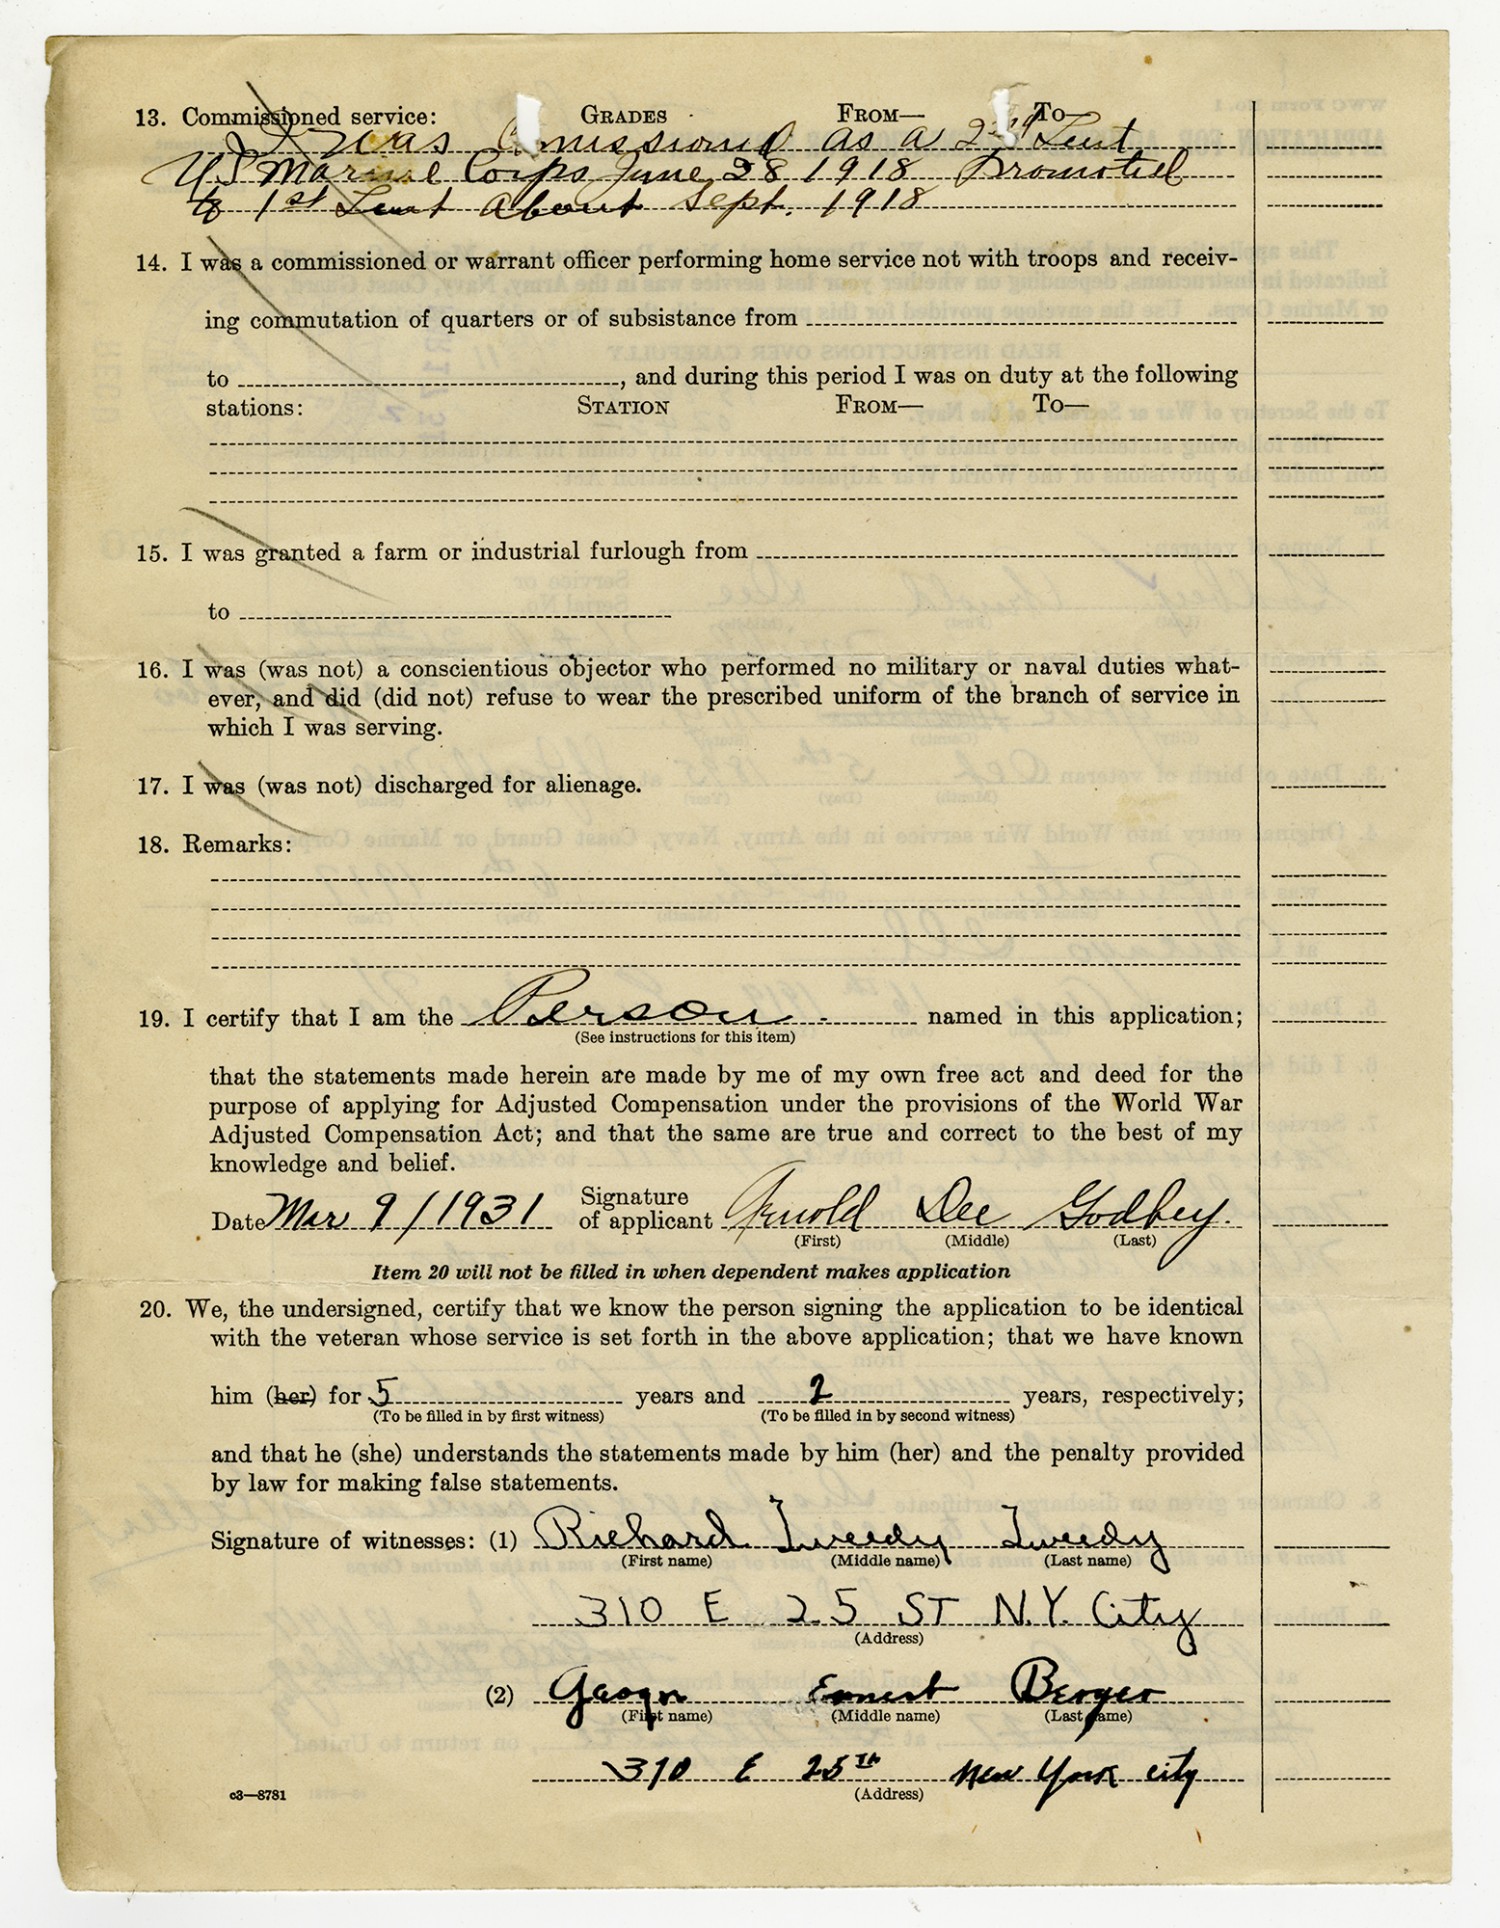 13. Commissioned service: GRADES FROM— TO—
I was Commissioned as a 2nd Leut
U.S Marine Corps June 28 1918 Promoted
to 1st Leut about Sept. 1918
14. I was a commissioned or warrant officer performing home service not with troops and receiv-
ing commutation of quarters or of subsistance from
to , and during this period I was on duty at the following
stations: STATION FROM— TO—
15. I was granted a farm or industrial furlough from
to
16. I was (was not) a conscientious objector who performed no military or naval duties what-
ever, and did (did not) refuse to wear the prescribed uniform of the branch of service in
which I was serving.
17. I was (was not) discharged for alienage.
18. Remarks:
19. I certify that I am the Person named in this application;
(See instructions for this item)
that the statements made herein are made by me of my own free act and deed for the
purpose of applying for Adjusted Compensation under the provisions of the World War
Adjusted Compensation Act; and that the same are true and correct to the best of my
knowledge and belief.
Date Mar 9/1931 Signature of applicant Arnold Dee Godbey.
(First) (Middle) (Last)
Item 20 will not be filled in when dependent makes application
20. We, the undersigned, certify that we know the person signing the application to be identical
with the veteran whose service is set forth in the above application; that we have known
him (her) for 5 years and 2 years, respectively;
(To be filled in by first witness) (To be filled in by second witness)
and that he (she) understands the statements made by him (her) and the penalty provided
by law for making false statements.
Signature of witnesses: (1) Richard Tweedy Tweedy
(First name) (Middle name) (Last name)
310 E 25 ST N.Y. City
(Address)
(2) Ernest Berger
(First name) (Middle name) (Last name)
310 E 25TH New York city
(Address)
c3—8781